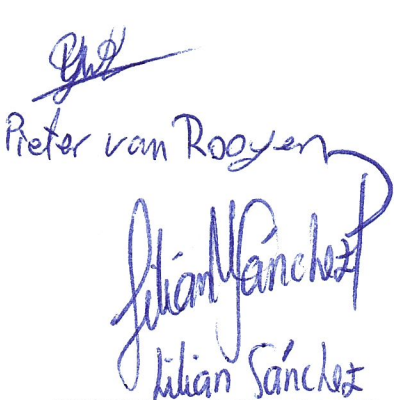 Pieter van Rooyen
Lilian M Sánchez P
Lilian Sánchez